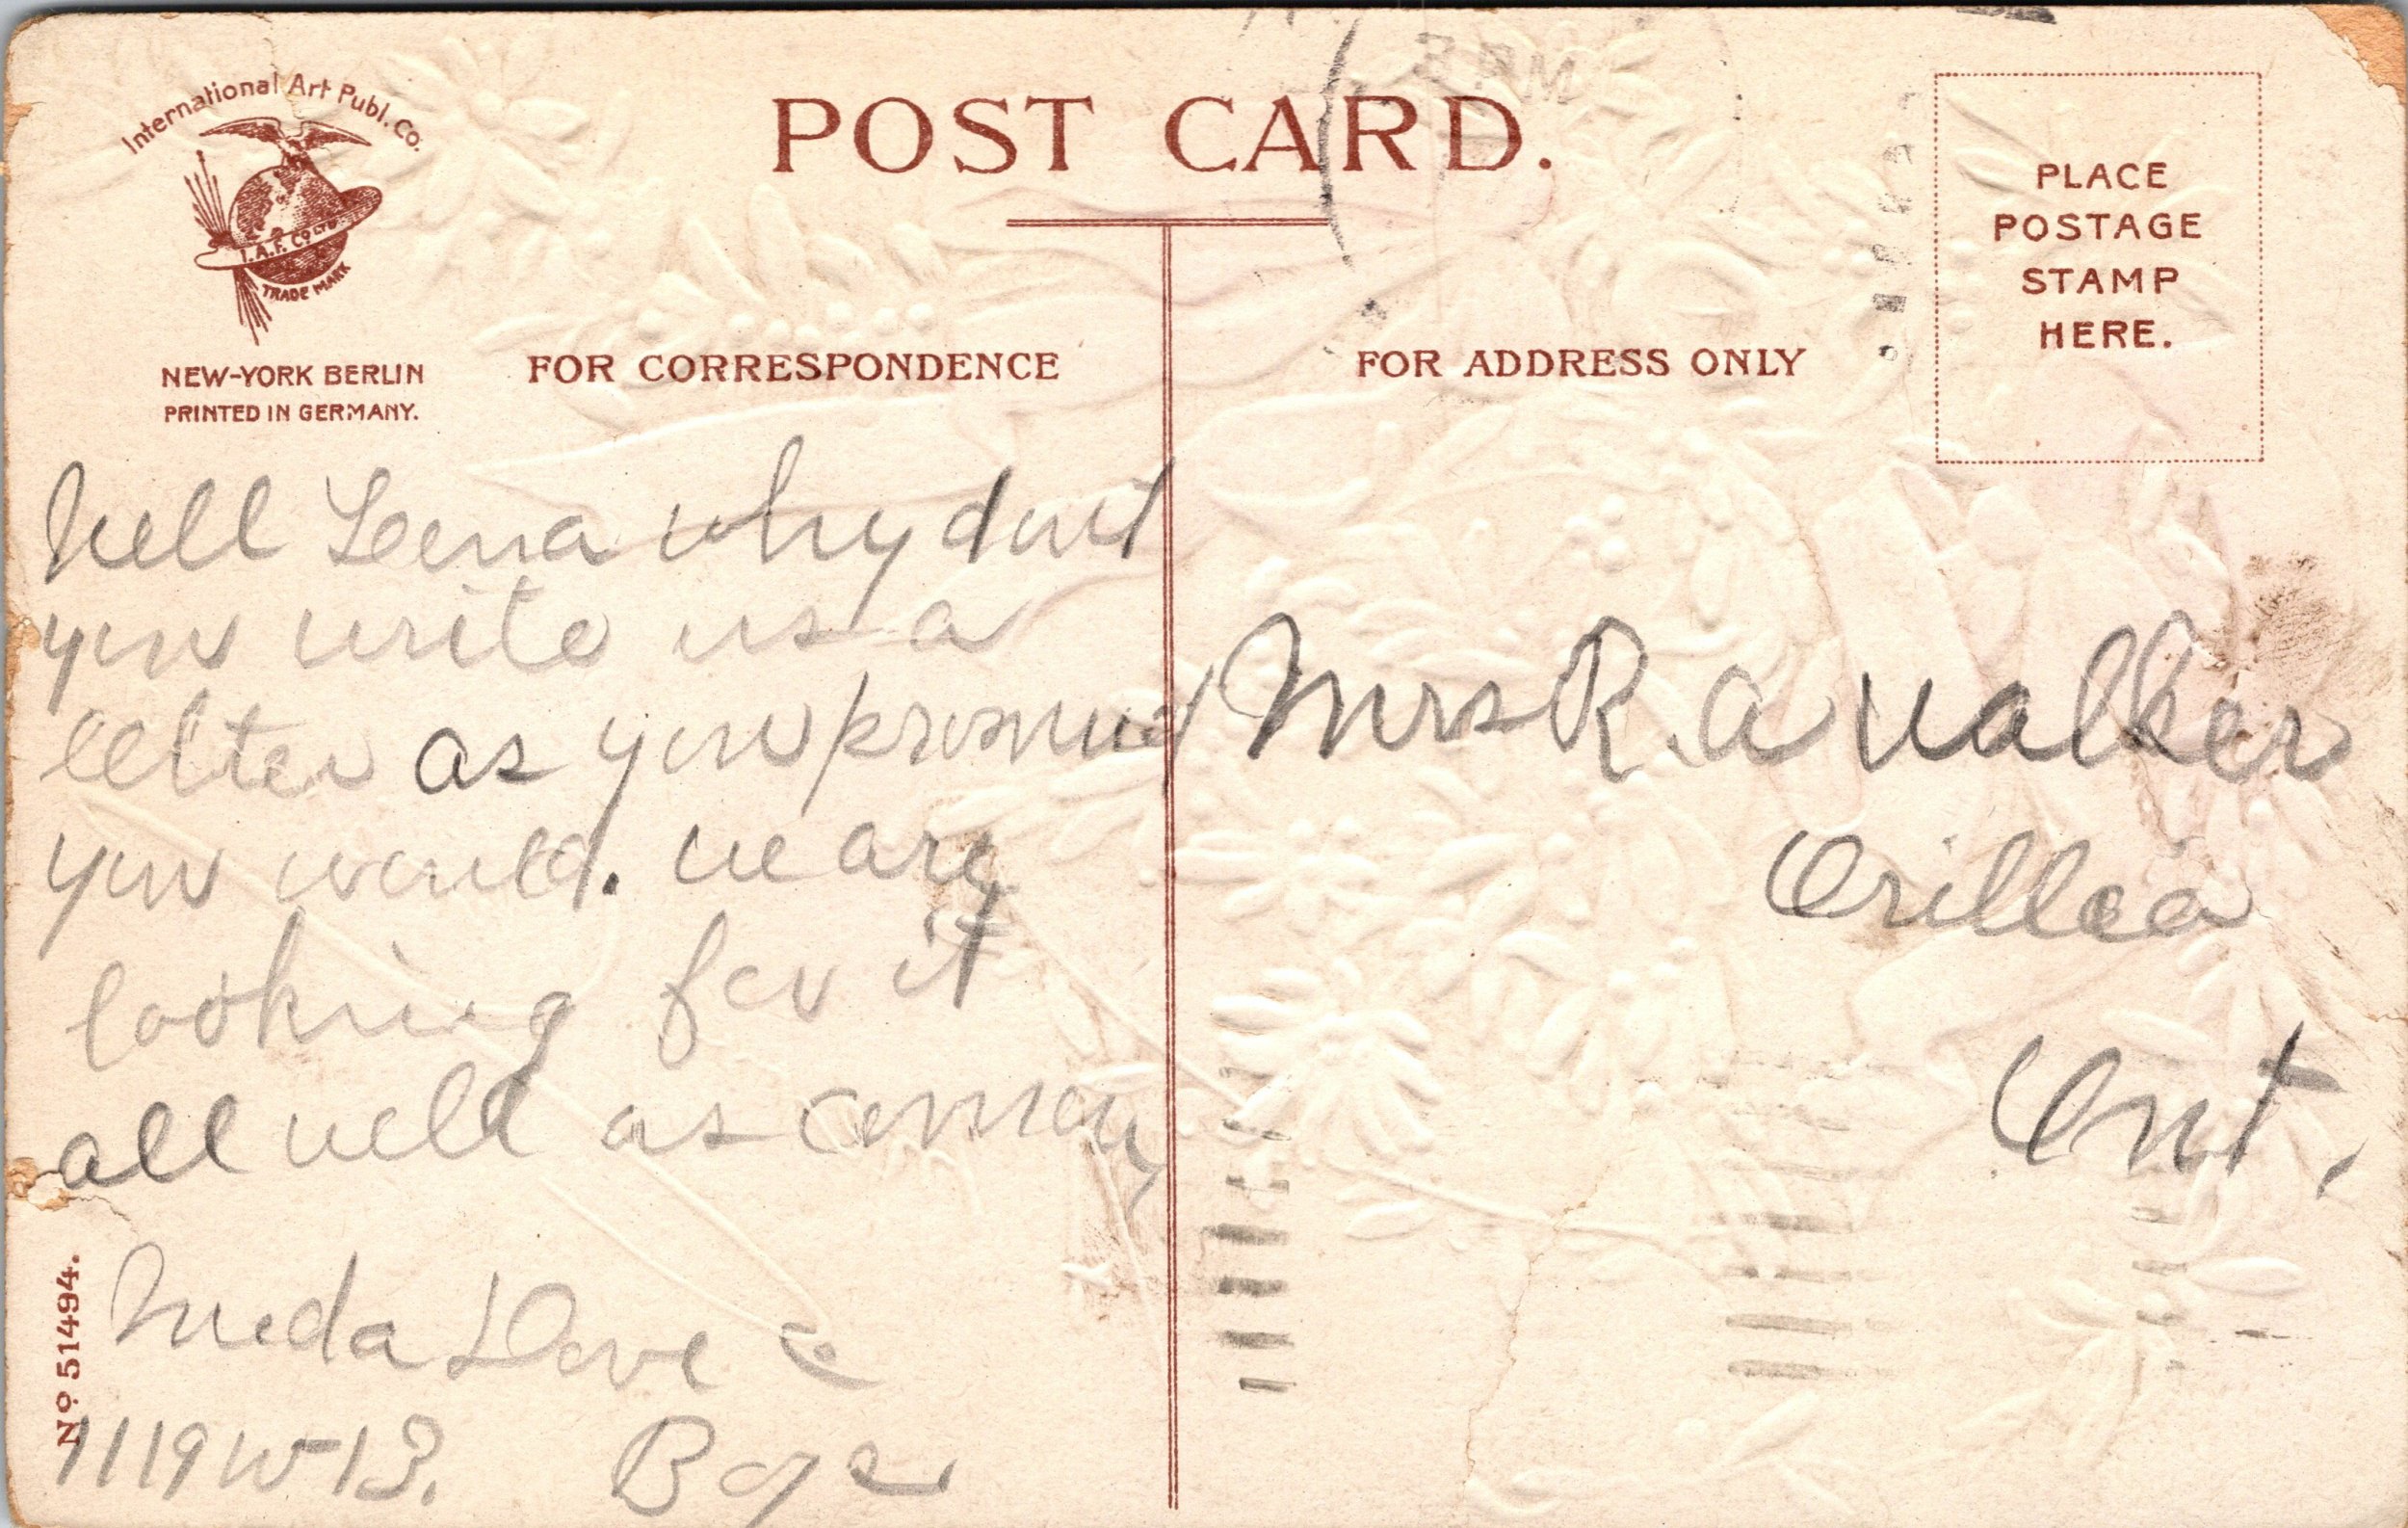 International Art Publ. Co.
I.A.P. Co LTD
TRADE MARK
NEW-YORK BERLIN
PRINTED IN GERMANY.
POST CARD.
3 PM
FOR CORRESPONDENCE
FOR ADDRESS ONLY
PLACE
POSTAGE
STAMP
HERE.
Well Lena why dont
you write us a
letter as you promised
you would. we are
looking for it
all well as
Meda Dove &
1119 W-13. Boys
Mrs R. a Walker
Orillia
Ont.
No 51494.